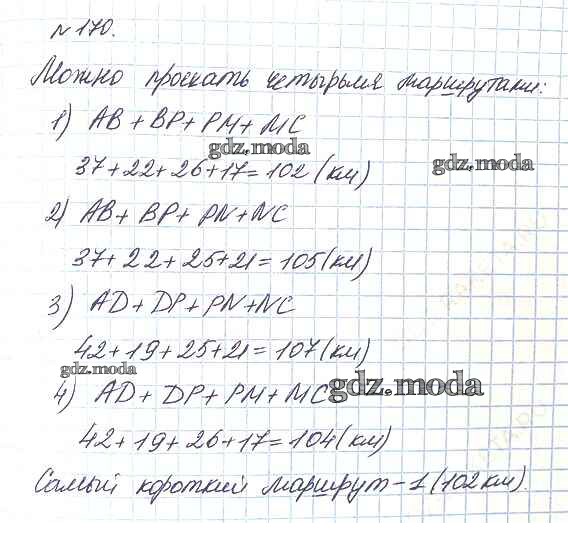 № 170.
Можно проехать четырьмя маршрутами:
1) AB + BP + PM + MC
gdz.moda
gdz.moda
37+22+26+17=102 (км)
2) AB + BP + PN + NC
37+22+25+21=105 (км)
3) AD + DP + PN + NC
42+19+25+21=107 (км)
gdz.moda
4) AD + DP + PM + MC
gdz.moda
42+19+26+17=104 (км)
Самый короткий маршрут – 1 (102 км).